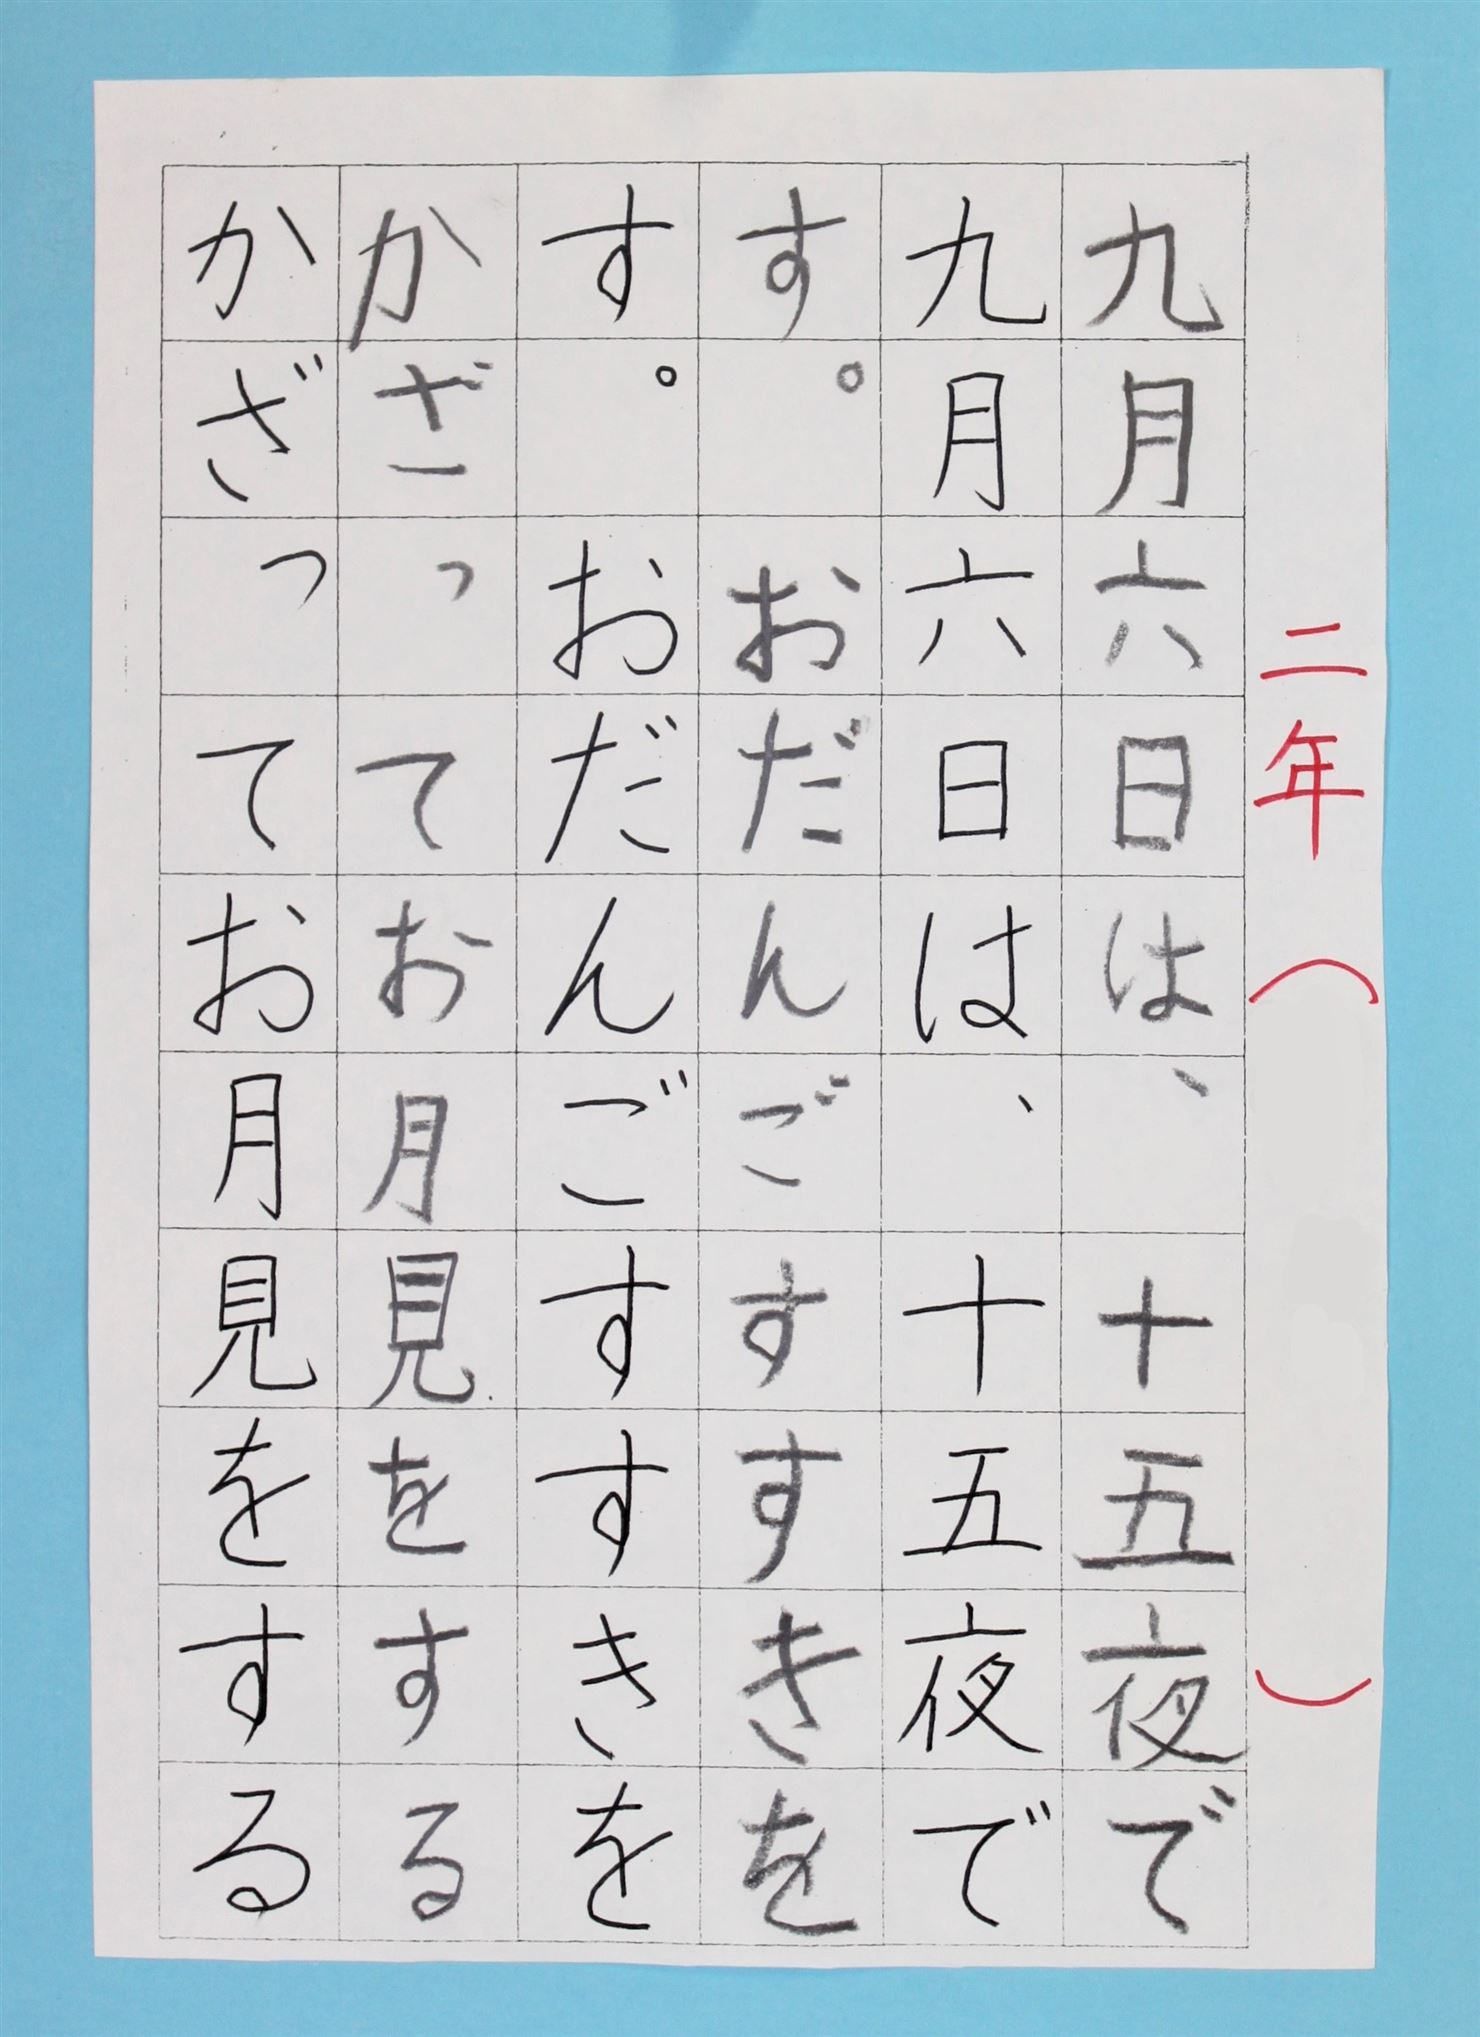 二年（　　）
九月六日は、十五夜で
九月六日は、十五夜で
す。おだんごすすきを
す。おだんごすすきを
かざってお月見をする
かざってお月見をする